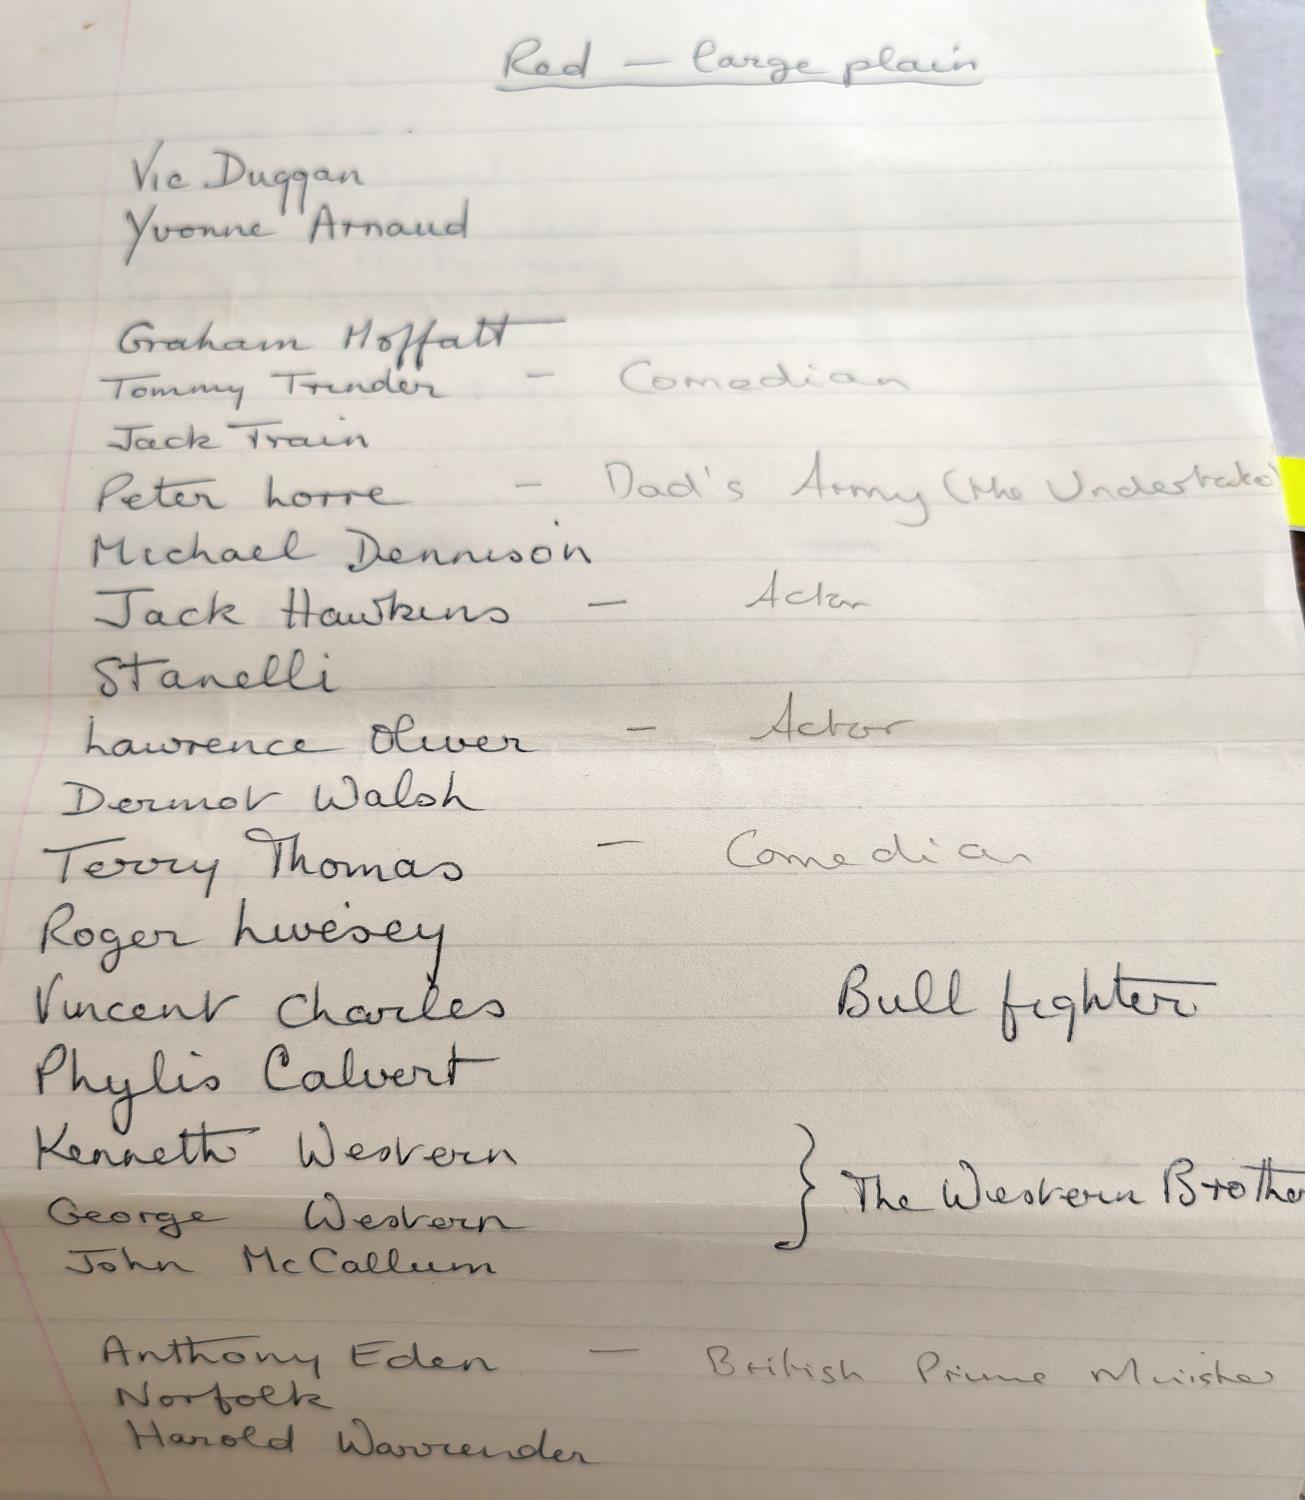 Red — large plain
Vic Duggan
Yvonne Arnaud
Graham Moffatt
Tommy Trinder - Comedian
Jack Train
Peter Lorre - Dad's Army (the Undertake
Michael Dennison
Jack Hawkins - Actor
Stanelli
Lawrence Oliver - Actor
Dermot Walsh
Terry Thomas - Comedian
Roger Lwesey
Vincent Charles Bull fighter
Phylis Calvert
Kenneth Western
George Western } The Western Brothe
John McCallum
Anthony Eden — British Prime Minister
Norfolk
Harold Warrender